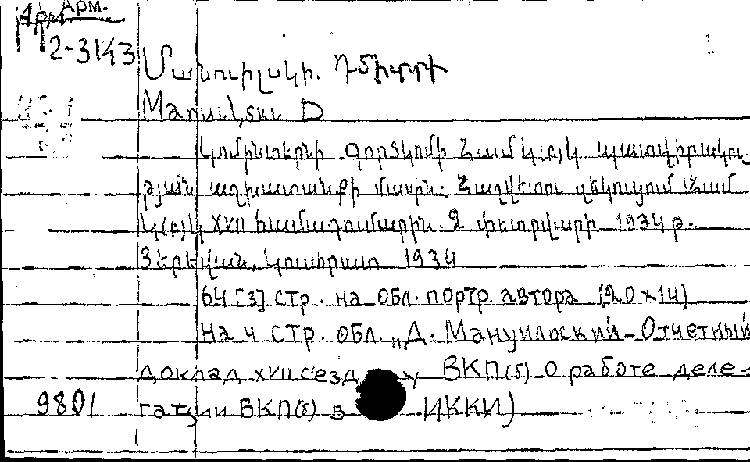 Арм.
2-3143
Մանուիլսկի. Դմիտրի
Manuilski D
Կոմինտերնի գործկոմի Համկ(բ)կ պատվիրակու
թյան աշխատանքի մասին. Հաշվետու զեկուցում Համ
կ(բ)կ XVII համագումարին. 2 փետրվարի 1934 թ.
Յերեվան, Կուսհրատ 1934
64 [3] стр. на обл. портр. автора (20×14)
На 4 стр. обл. „Д. Мануильский - Отчетный
доклад XVII съезд у ВКП(б) о работе деле-
9801 гации ВКП(б) в ИККИ)